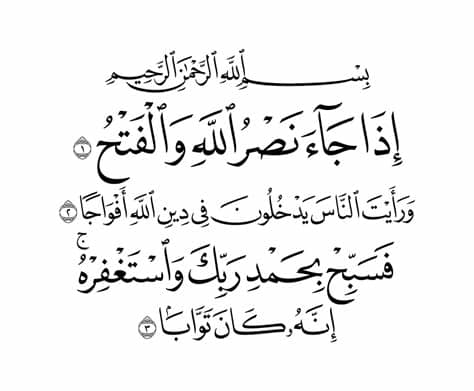 بِسْمِ ٱللَّهِ ٱلرَّحْمَٰنِ ٱلرَّحِيمِ
إِذَا جَآءَ نَصْرُ ٱللَّهِ وَٱلْفَتْحُ ١
وَرَأَيْتَ ٱلنَّاسَ يَدْخُلُونَ فِى دِينِ ٱللَّهِ أَفْوَاجًا ٢
فَسَبِّحْ بِحَمْدِ رَبِّكَ وَٱسْتَغْفِرْهُ ۚ
إِنَّهُۥ كَانَ تَوَّابًۢا ٣